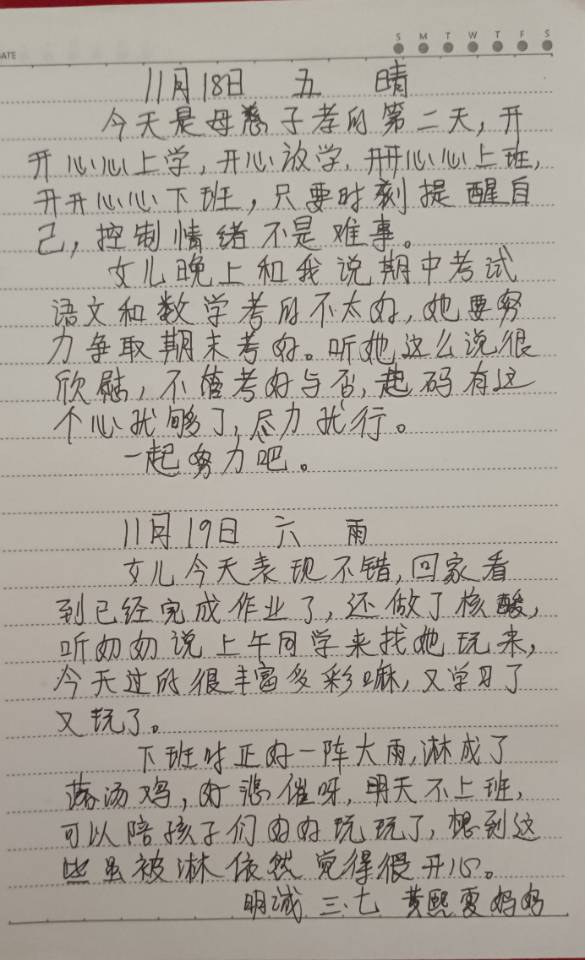 DATE
S M T W T F S
11月18日 五 晴
今天是母慈子孝的第二天,开
开心心上学,开心放学,开开心心上班,
开开心心下班,只要时刻提醒自
己,控制情绪不是难事。
女儿晚上和我说期中考试
语文和数学考的不太好,她要努
力争取期末考好。听她这么说很
欣慰,不管考好与否,起码有这
个心就够了,尽力就行。
一起努力吧。
11月19日 六 雨
女儿今天表现不错,回家看
到已经完成作业了,还做了核酸,
听奶奶说上午同学来找她玩来,
今天过的很丰富多彩嘛,又学习了
又玩了。
下班时正好一阵大雨,淋成了
落汤鸡,好悲催呀,明天不上班,
可以陪孩子们好好玩玩了,想到这
些虽被淋依然觉得很开心。
明诚 三.七 黄熙雯妈妈